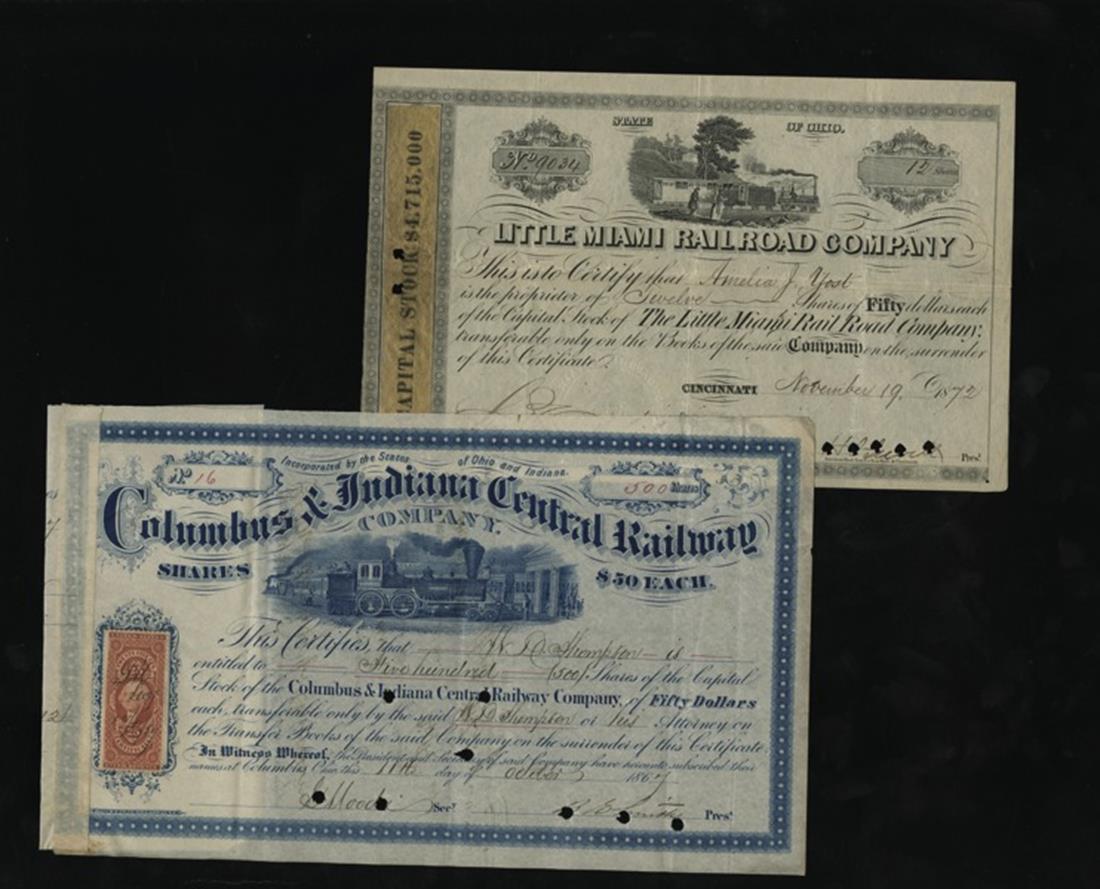 STATE OF OHIO.
No. 9034
12 Shares
CAPITAL STOCK $4,715,000
LITTLE MIAMI RAILROAD COMPANY
This is to Certify that Amelia J. Yost
is the proprietor of Twelve Shares of Fifty dollars each
of the Capital Stock of The Little Miami Rail Road Company;
transferable only on the Books of the said Company on the surrender
of this Certificate.
CINCINNATI November 19, 1872
Prest.
No 16
Incorporated by the States of Ohio and Indiana.
500 Shares
Columbus & Indiana Central Railway
COMPANY.
SHARES $50 EACH.
This Certifies, that W D Thompson is
entitled to Five hundred (500) Shares of the Capital
Stock of the Columbus & Indiana Central Railway Company, of Fifty Dollars
each, transferable only by the said W D Thompson or his Attorney on
the Transfer Books of the said Company on the surrender of this Certificate.
In Witness Whereof, the President and Secretary of said Company have hereunto subscribed their
names at Columbus, Ohio this 11th day of October 1867
Secy.
B E Smith Prest.